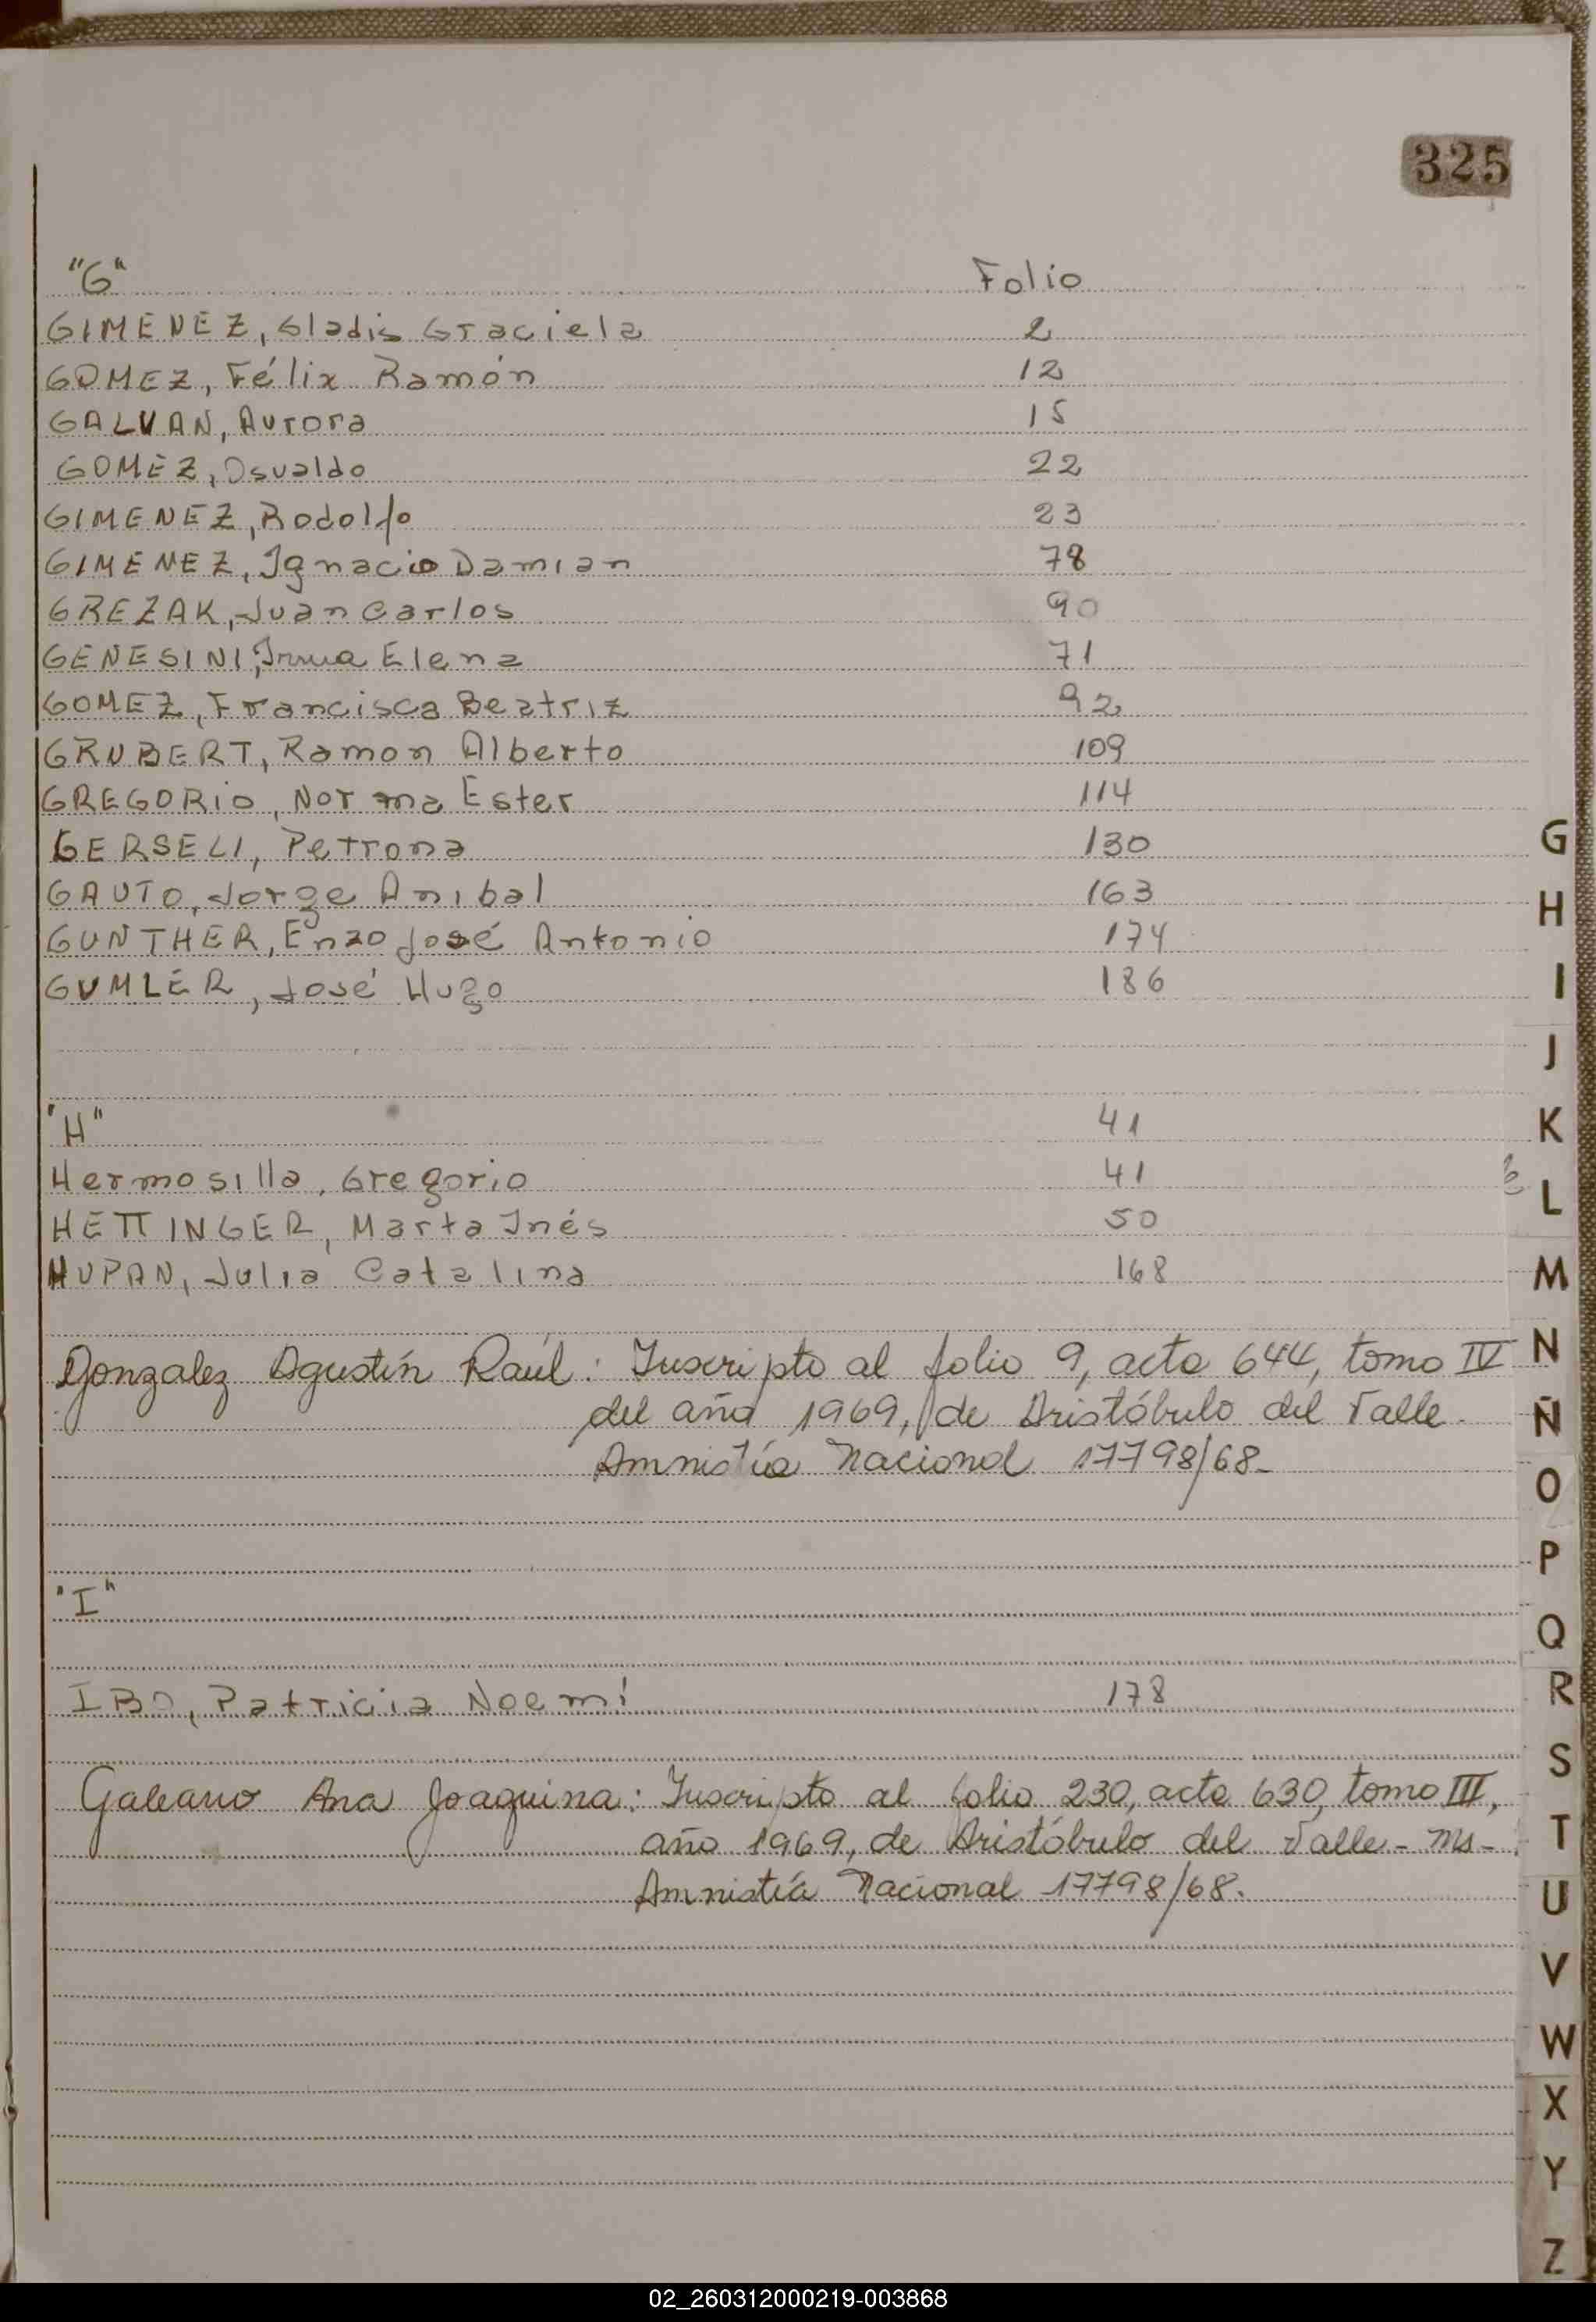 325
"G" Folio
GIMENEZ, Gladis Graciela 2
GOMEZ, Félix Ramón 12
GALVAN, Aurora 15
GOMEZ, Osvaldo 22
GIMENEZ, Rodolfo 23
GIMENEZ, Ignacio Damian 78
GREZAK, Juan Carlos 90
GENESINI, Irma Elena 71
GOMEZ, Francisca Beatriz 92
GRUBERT, Ramon Alberto 109
GREGORIO, Norma Ester 114
GERSELI, Petrona 130
GAUTO, Jorge Anibal 163
GUNTHER, Enzo José Antonio 174
GUMLER, José Hugo 186
"H" 41
Hermosilla, Gregorio 41
HETTINGER, Marta Inés 50
HUPAN, Julia Catalina 168
Gonzalez Agustín Raúl: Inscripto al folio 9, acta 644, tomo IV
del año 1969, de Aristóbulo del Valle.
Amnistía Nacional 17798/68-
"I"
IBO, Patricia Noemí 178
Galeano Ana Joaquina: Inscripto al folio 230, acta 630, tomo III,
año 1969, de Aristóbulo del Valle - Ms -
Amnistía Nacional 17798/68.
G
H
I
J
K
L
M
N
Ñ
O
P
Q
R
S
T
U
V
W
X
Y
Z
02_260312000219-003868